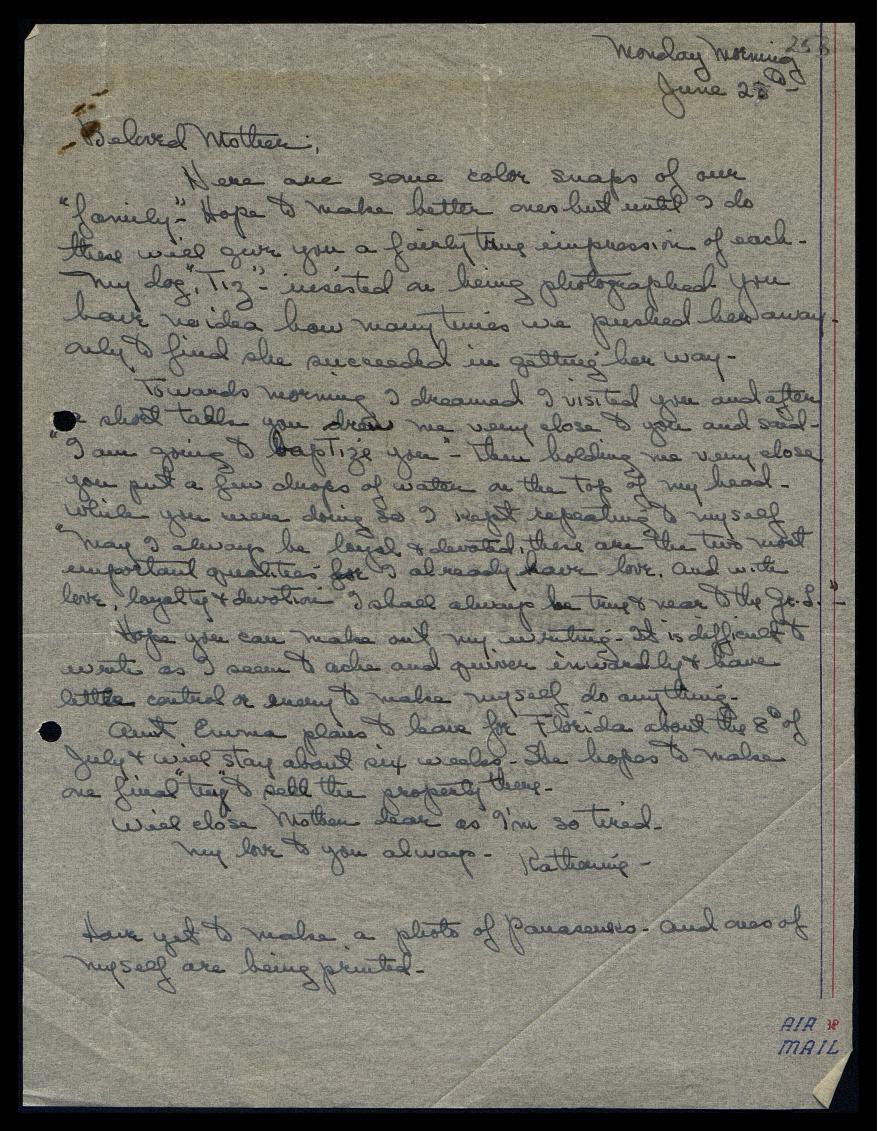 Monday Morning
June 25th -
Beloved Mother,
Here are some color snaps of our
"family". Hope to make better ones but until I do
these will give you a fairly true impression of each -
My dog, "Tiz" - insisted on being photographed you
have no idea how many times we pushed her away -
only to find she succeeded in getting her way -
Towards morning I dreamed I visited you and after
a short talk you drew me very close to you and said -
"I am going to baptize you" - Then holding me very close
you put a few drops of water on the top of my head -
While you were doing so I kept repeating to myself
"May I always be loyal & devoted, these are the two most
important qualities for I already have love. And with
love, loyalty & devotion I shall always be true & near to the Gr. L." -
Hope you can make out my writing - It is difficult to
write as I seem to ache and quiver inwardly & have
little control or energy to make myself do anything -
Aunt Emma plans to leave for Florida about the 8th of
July & will stay about six weeks - She hopes to make
one final "try" to sell the property there -
Will close Mother dear as I'm so tired -
My love to you always - Katherine -
Have yet to make a photo of Panasenko - and ones of
myself are being printed -
AIR
MAIL